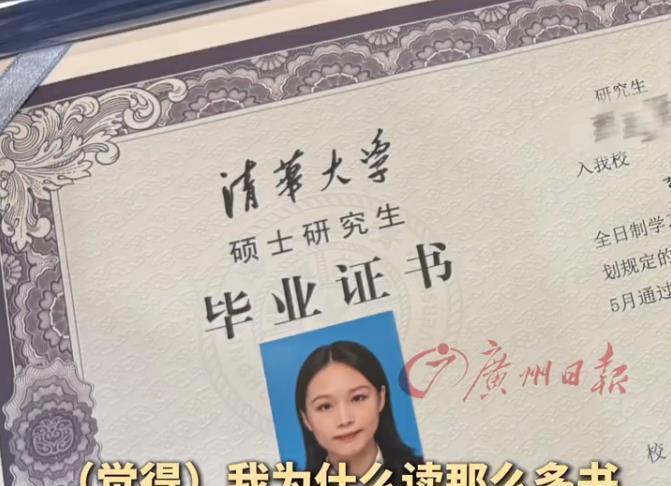 清华大学
硕士研究生
毕业证书
研究生
入我校
全日制学，
划规定的
5月通过
校
廣州日報
（觉得）我为什么读那么多书